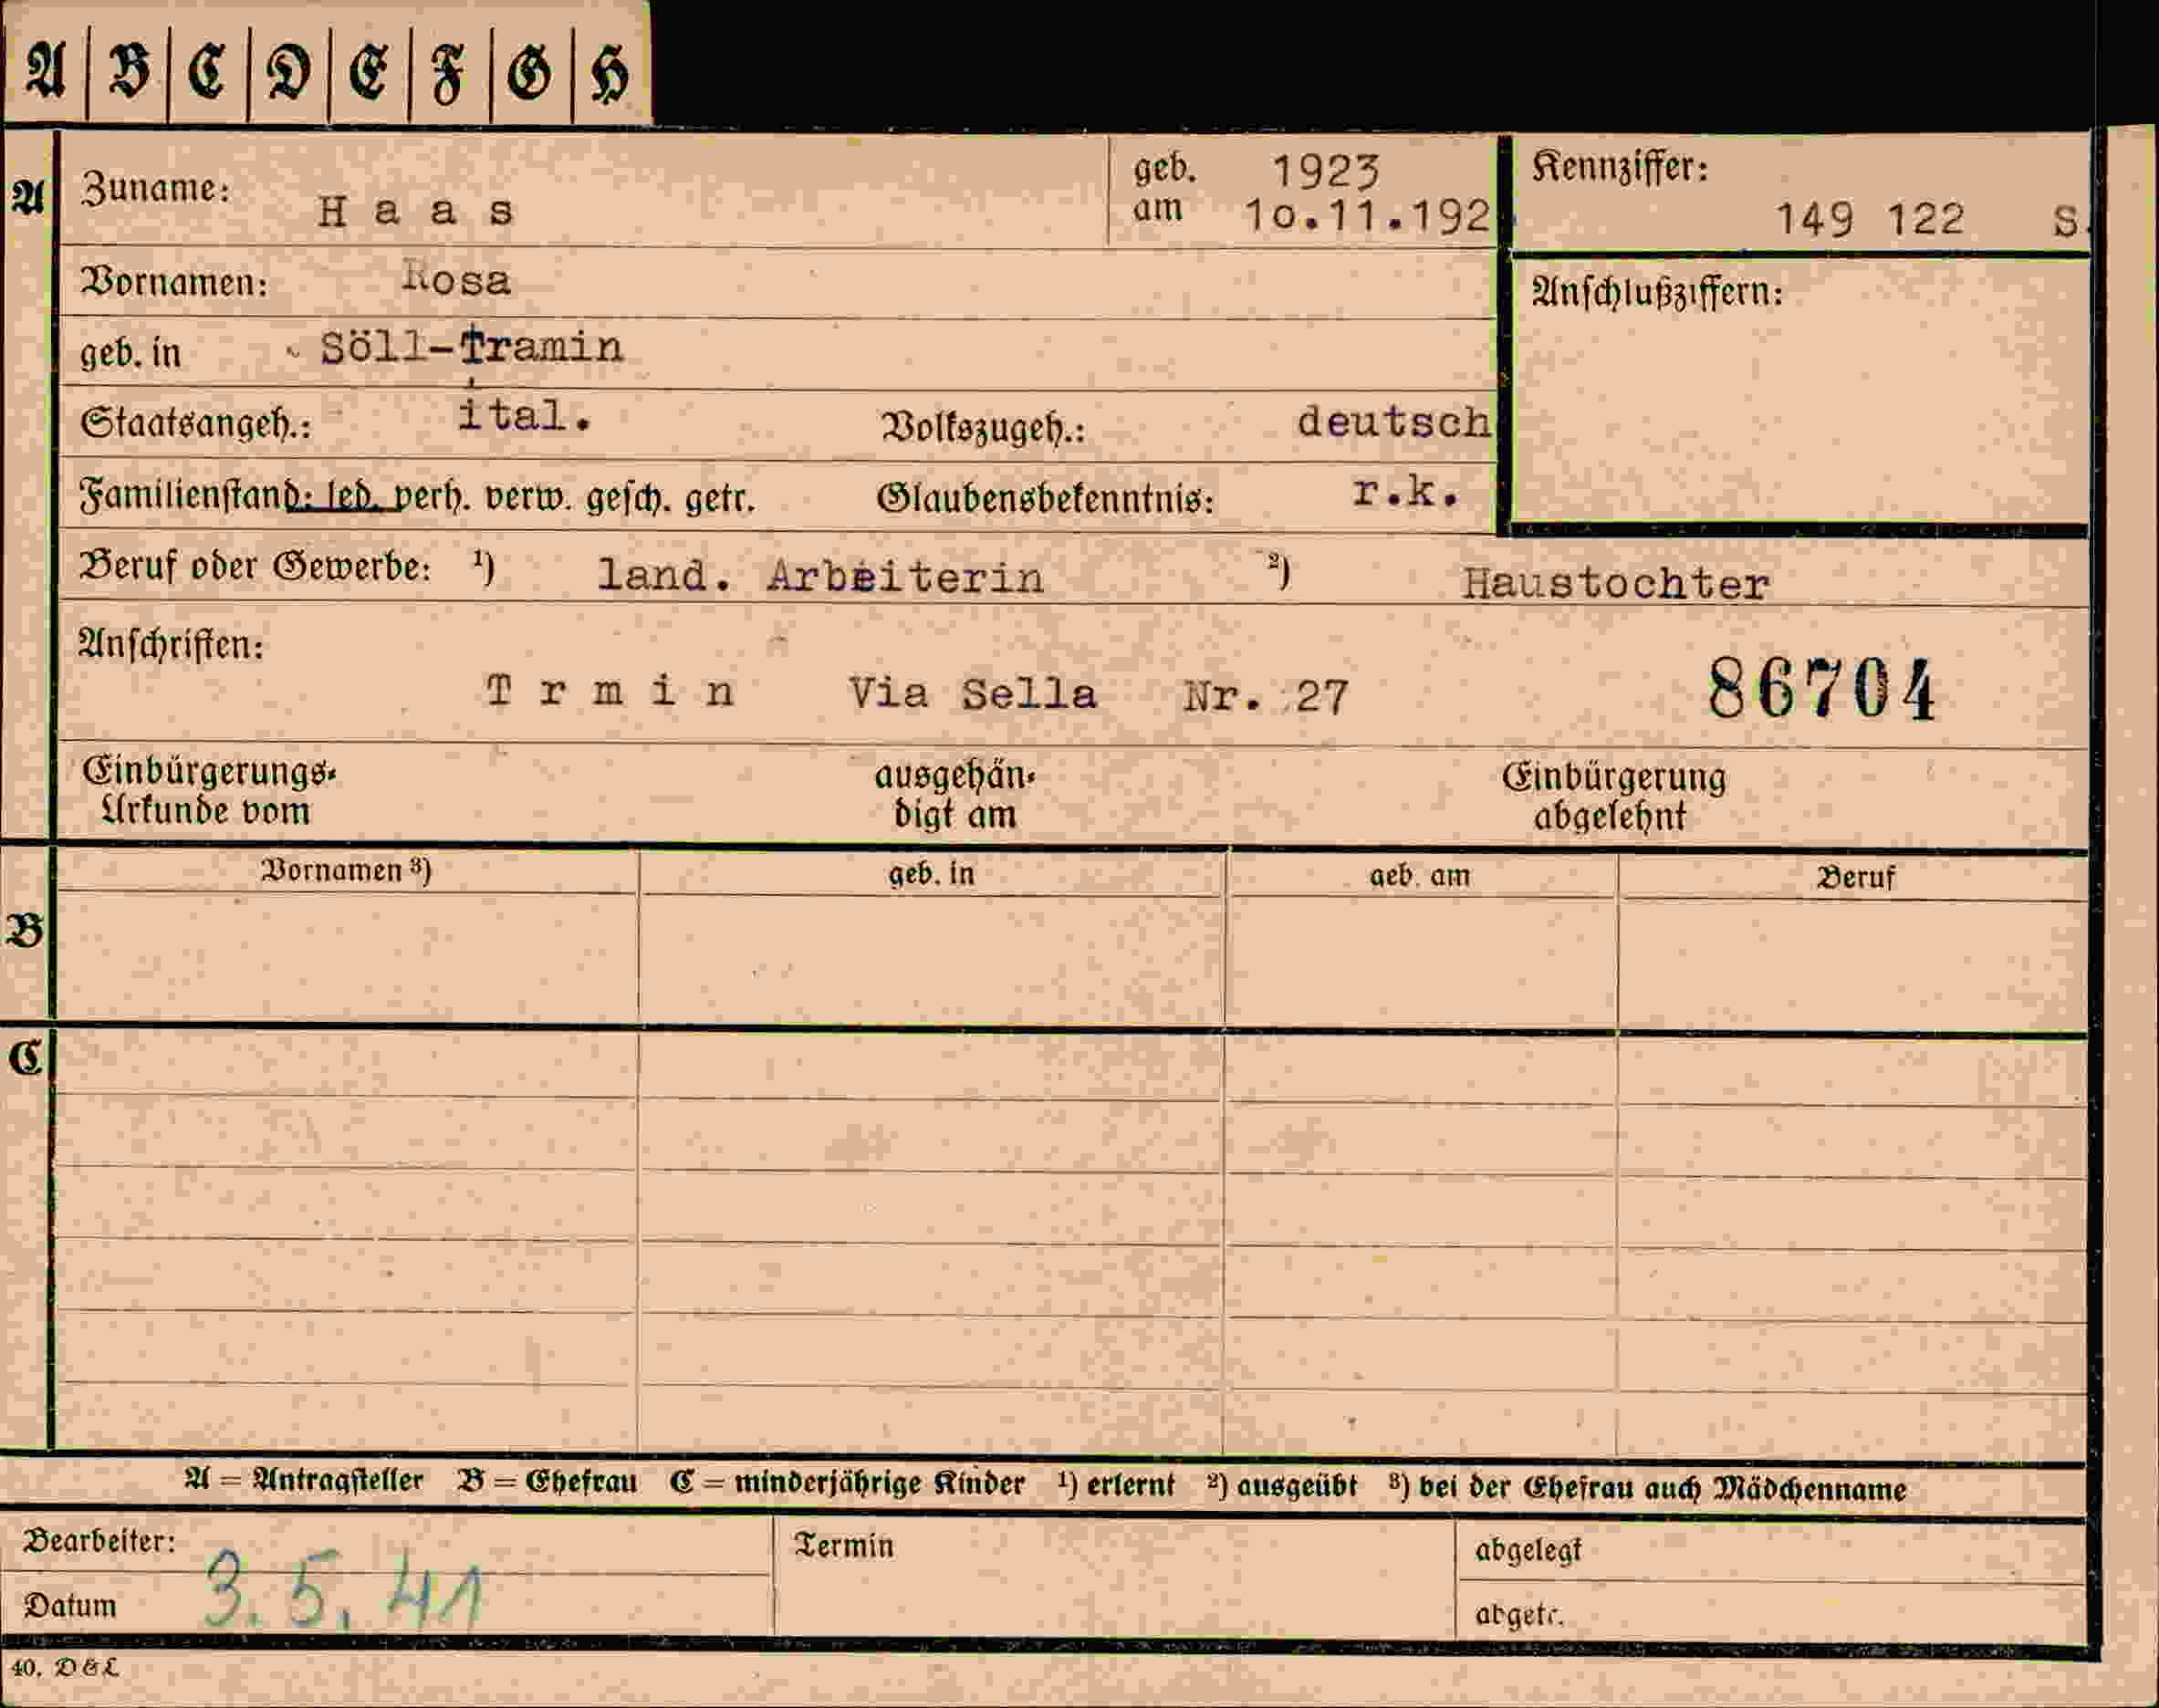 A | B | C | D | E | F | G | H
A Zuname: H a a s geb. am 1923 10.11.192 Kennziffer: 149 122 S.
Vornamen: Rosa Anschlußziffern:
geb. in Söll-Tramin
Staatsangeh.: ital. Volkszugeh.: deutsch
Familienstand: led. verh. verw. gesch. getr. Glaubensbekenntnis: r.k.
Beruf oder Gewerbe: ¹) land. Arbeiterin ²) Haustochter
Anschriften:
T r m i n Via Sella Nr. 27 86704
Einbürgerungs- ausgehän- Einbürgerung
Urkunde vom digt am abgelehnt
Vornamen ³) geb. in geb. am Beruf
B
C
A = Antragsteller B = Ehefrau C = minderjährige Kinder ¹) erlernt ²) ausgeübt ³) bei der Ehefrau auch Mädchenname
Bearbeiter: Termin abgelegt
Datum 3. 5. 41 abgetr.
40. D & L